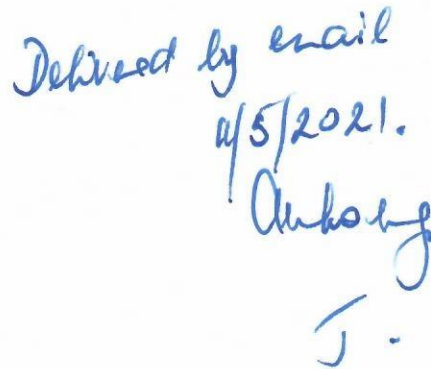 Delivered by email
11/5/2021.
J.